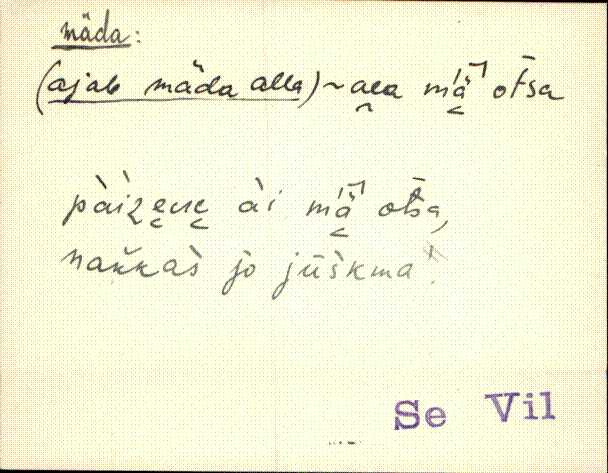 mäda:
(ajab mäda alla) ~ aɛa mä̀ otsa
pàizɛnɛ ài mä̀ otsa,
nakkas jo jūskma.
Se Vil